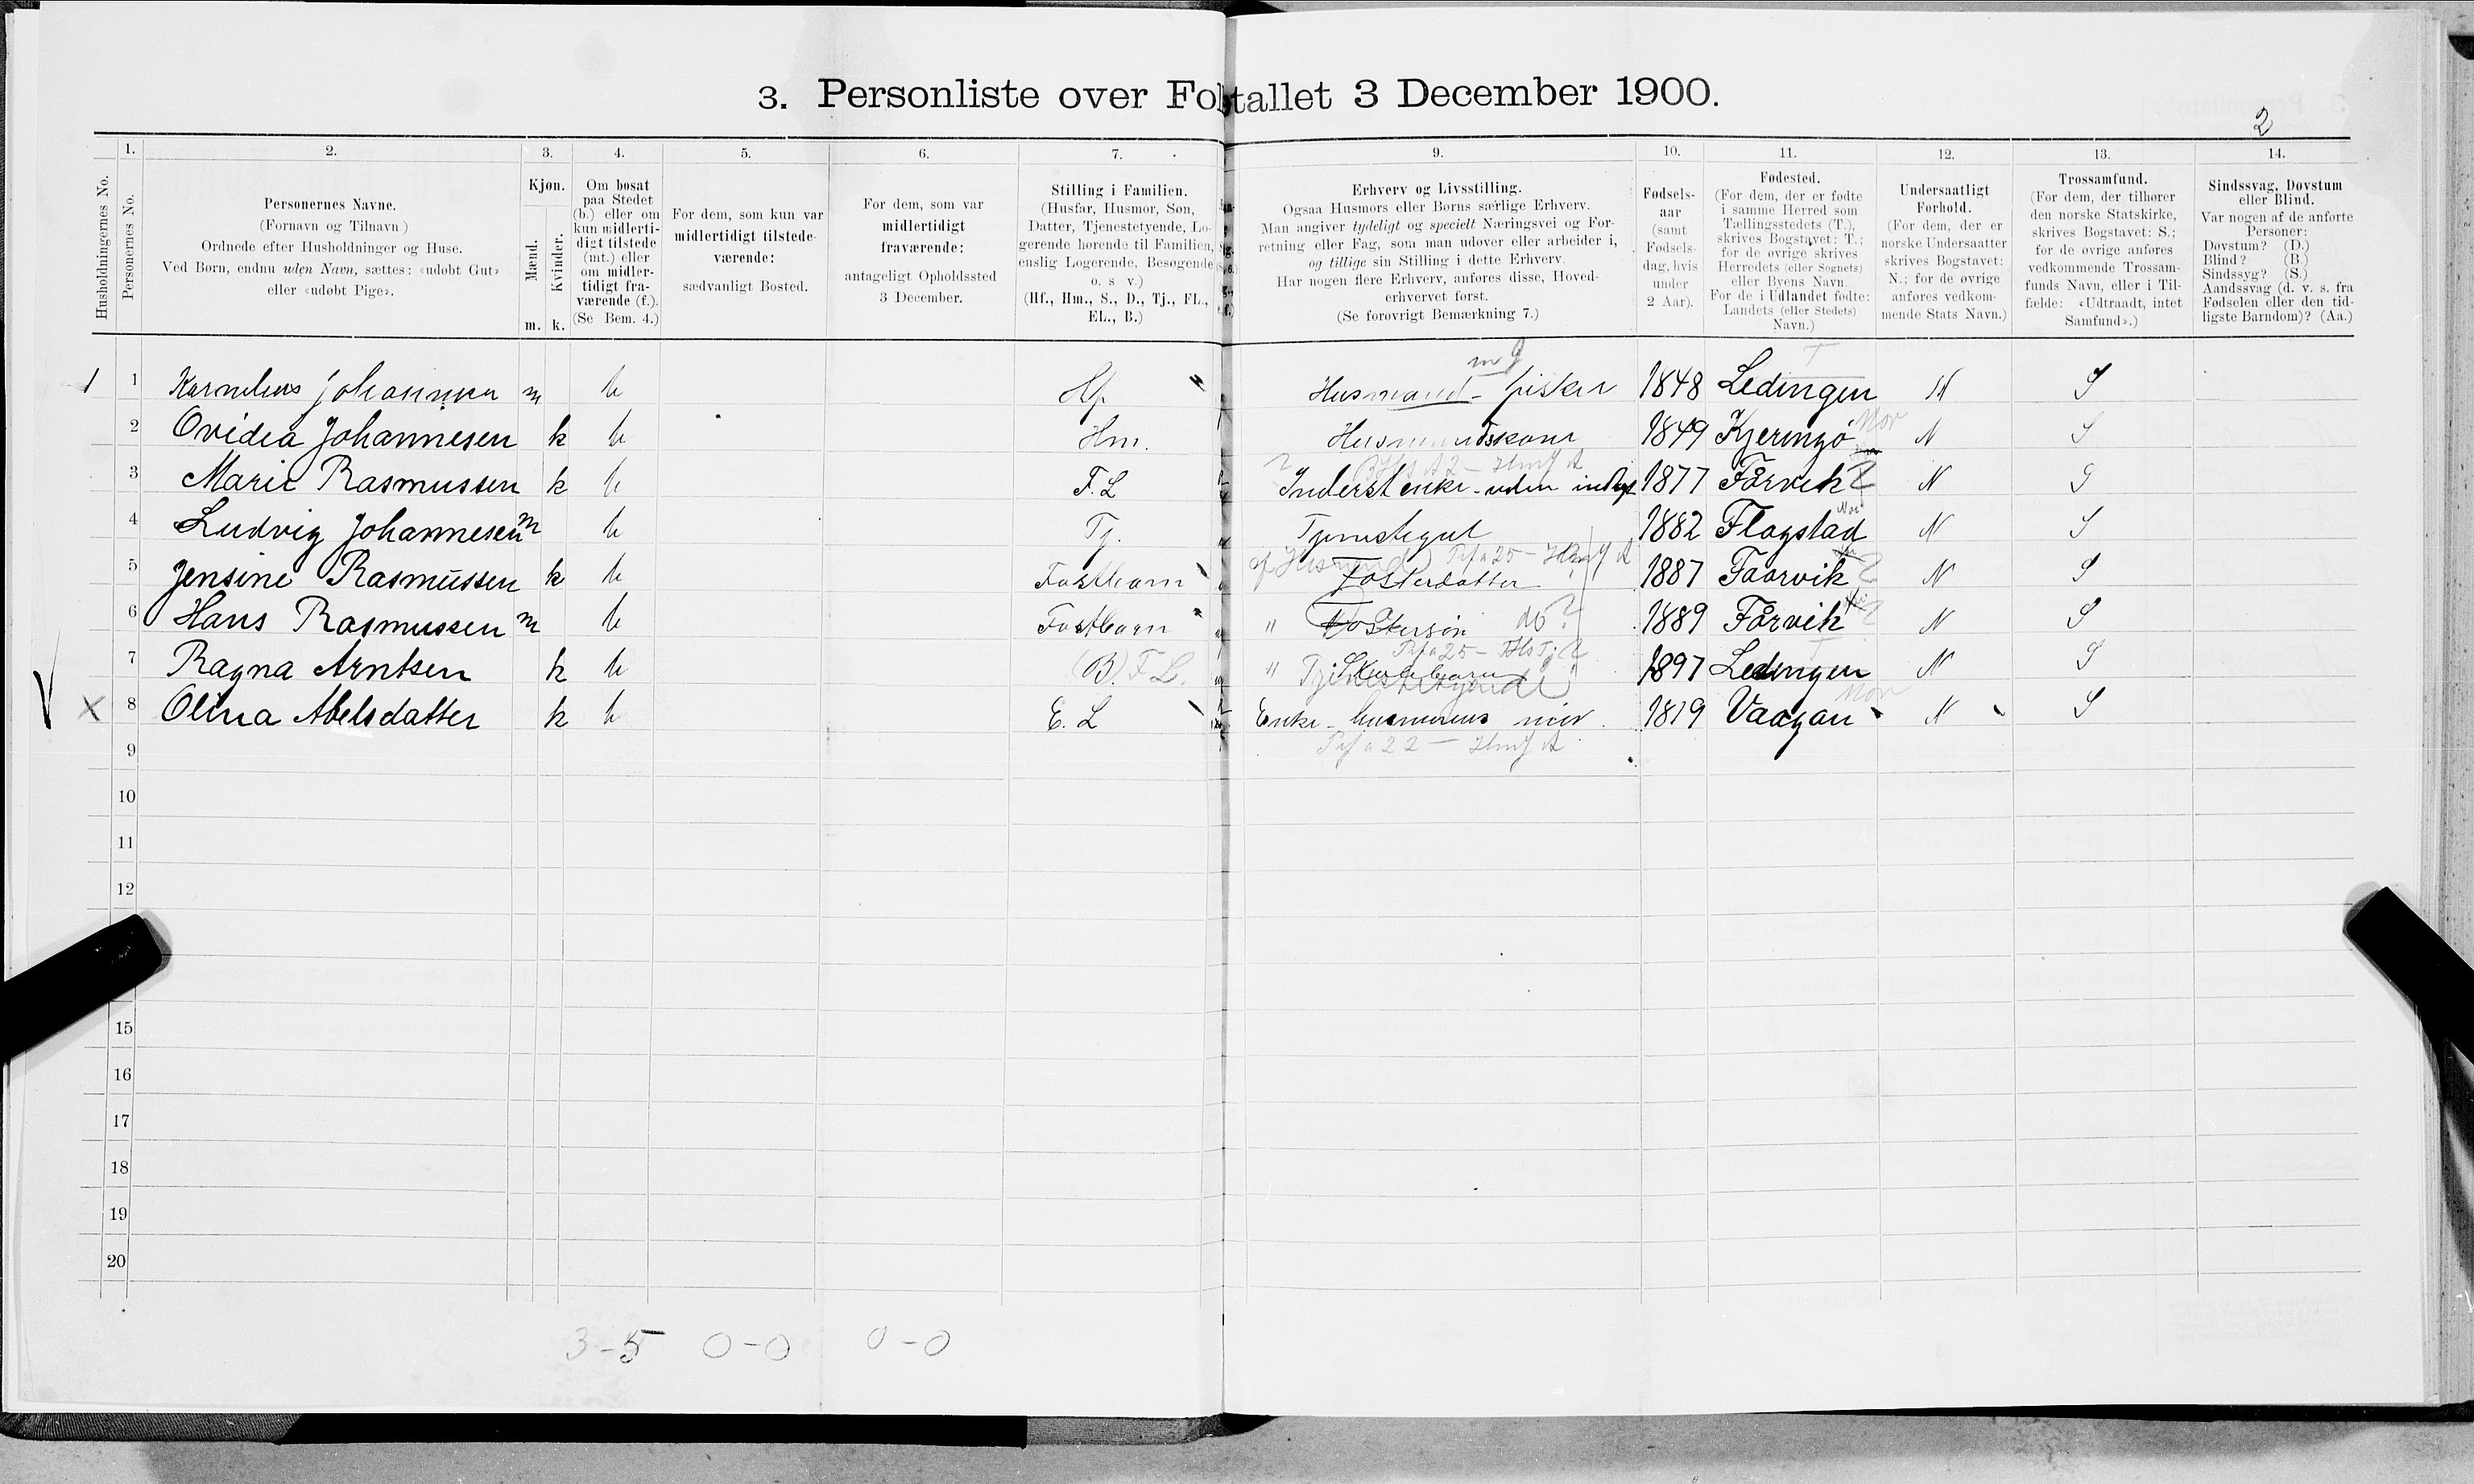 3. Personliste over Folketallet 3 December 1900.
2
1. 2. 3. 4. 5. 6. 7. 9. 10. 11. 12. 13. 14.
Husholdningernes No.
Personernes No.
Personernes Navne.
(Fornavn og Tilnavn)
Ordnede efter Husholdninger og Huse.
Ved Børn, endnu uden Navn, sættes: «udøbt Gut»
eller «udøbt Pige».
Kjøn.
Mænd.
Kvinder.
m. k.
Om bosat
paa Stedet
(b.) eller om
kun midlerti-
digt tilstede
(mt.) eller
om midler-
tidigt fra-
værende (f.).
(Se Bem. 4.)
For dem, som kun var
midlertidigt tilstede-
værende:
sædvanligt Bosted.
For dem, som var
midlertidigt
fraværende:
antageligt Opholdssted
3 December.
Stilling i Familien.
(Husfar, Husmor, Søn,
Datter, Tjenestetyende, Lo-
gerende hørende til Familien,
enslig Logerende, Besøgende
o. s v.)
(Hf., Hm., S., D., Tj., FL.,
EL., B.)
Erhverv og Livsstilling.
Ogsaa Husmors eller Børns særlige Erhverv.
Man angiver tydeligt og specielt Næringsvei og For-
retning eller Fag, som man udøver eller arbeider i,
og tillige sin Stilling i dette Erhverv.
Har nogen flere Erhverv, anføres disse, Hoved-
erhvervet først.
(Se forøvrigt Bemærkning 7.)
Fødsels-
aar
(samt
Fødsels-
dag, hvis
under
2 Aar).
Fødested.
(For dem, der er fødte
i samme Herred som
Tællingsstedets (T.),
skrives Bogstavet: T.;
for de øvrige skrives
Herredets (eller Sognets)
eller Byens Navn.
For de i Udlandet fødte:
Landets (eller Stedets)
Navn.)
Undersaatligt
Forhold.
(For dem, der er
norske Undersaatter
skrives Bogstavet:
N.; for de øvrige
anføres vedkom-
mende Stats Navn.)
Trossamfund.
(For dem, der tilhører
den norske Statskirke,
skrives Bogstavet: S.;
for de øvrige anføres
vedkommende Trossam-
funds Navn, eller i Til-
fælde: «Udtraadt, intet
Samfund».)
Sindssvag, Døvstum
eller Blind.
Var nogen af de anførte
Personer:
Døvstum? (D.)
Blind? (B.)
Sindssyg? (S.)
Aandssvag (d. v. s. fra
Fødselen eller den tid-
ligste Barndom)? (Aa.)
T
1 1 Kornelius Johannesen m b Hf Husmand - fisker 1848 Lødingen N S
2 Ovidea Johannesen k b Hm. Husmandskone 1849 Kjeringø Nor N S
3 Marie Rasmussen k b F. L Inderst enke - uden indtgt 1877 Fårvik N S
4 Ludvig Johannesen m b Tj. Tjenstegut 1882 Flagstad N S
5 Jensine Rasmussen k b Fostbarn Fosterdatter 1887 Faarvik N S
6 Hans Rasmussen m b Fostbarn " Fostersøn 1889 Fårvik N S
7 Ragna Arntsen k b (B). F L. " 1897 Ledingen N S
8 Olina Abelsdatter k b E. L Enke - husmorens mor 1819 Vaagan N S
9
10
11
12
15
16
17
18
19
20
3-5 0-0 0-0